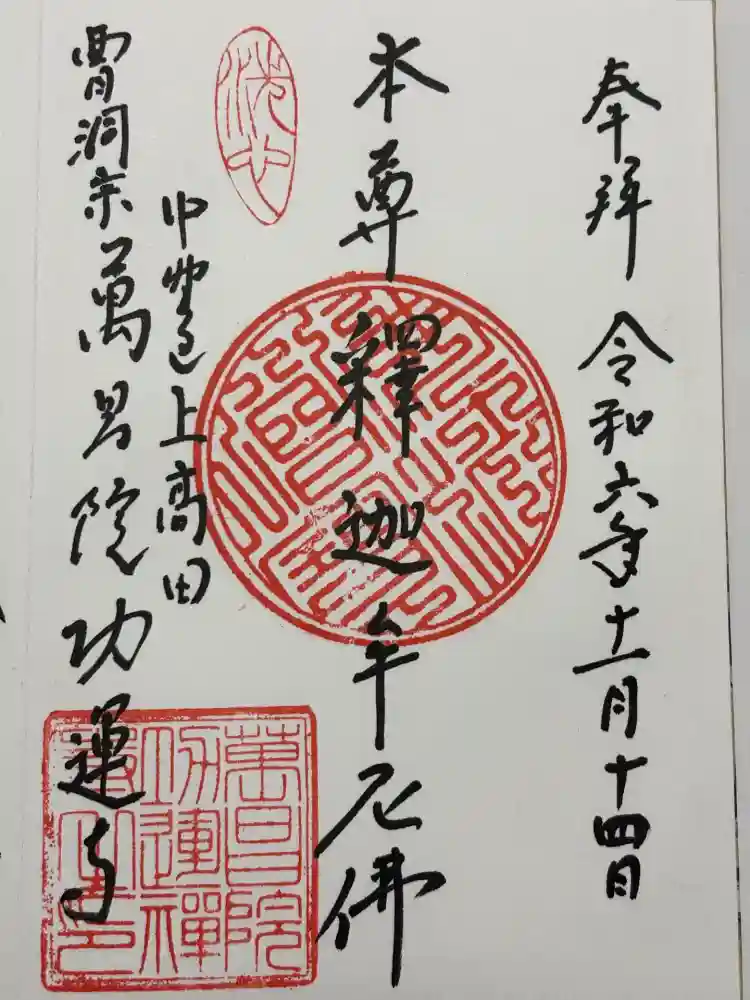 奉拝 令和六年十一月十四日
本尊 釋迦牟尼佛
中野区上高田
曹洞宗萬昌院功運寺
萬昌院
功運禅